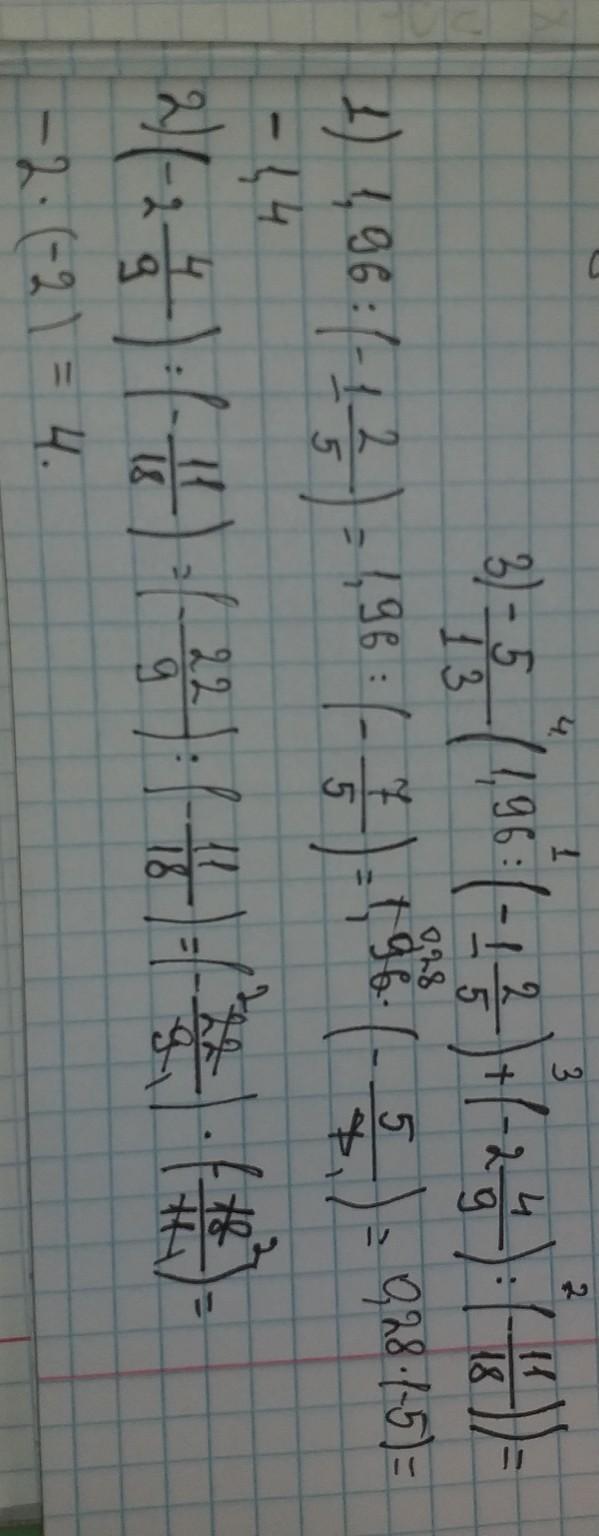 3) - 5/13 (1,96 : (-1 2/5) + (-2 4/9) : (-11/18)) =
1) 1,96 : (-1 2/5) = 1,96 : (-7/5) = 1,96 · (-5/7) = 0,28 · (-5) =
- 1,4
2) (-2 4/9) : (-11/18) = (-22/9) : (-11/18) = (-22/9) · (-18/11) =
-2 · (-2) = 4.